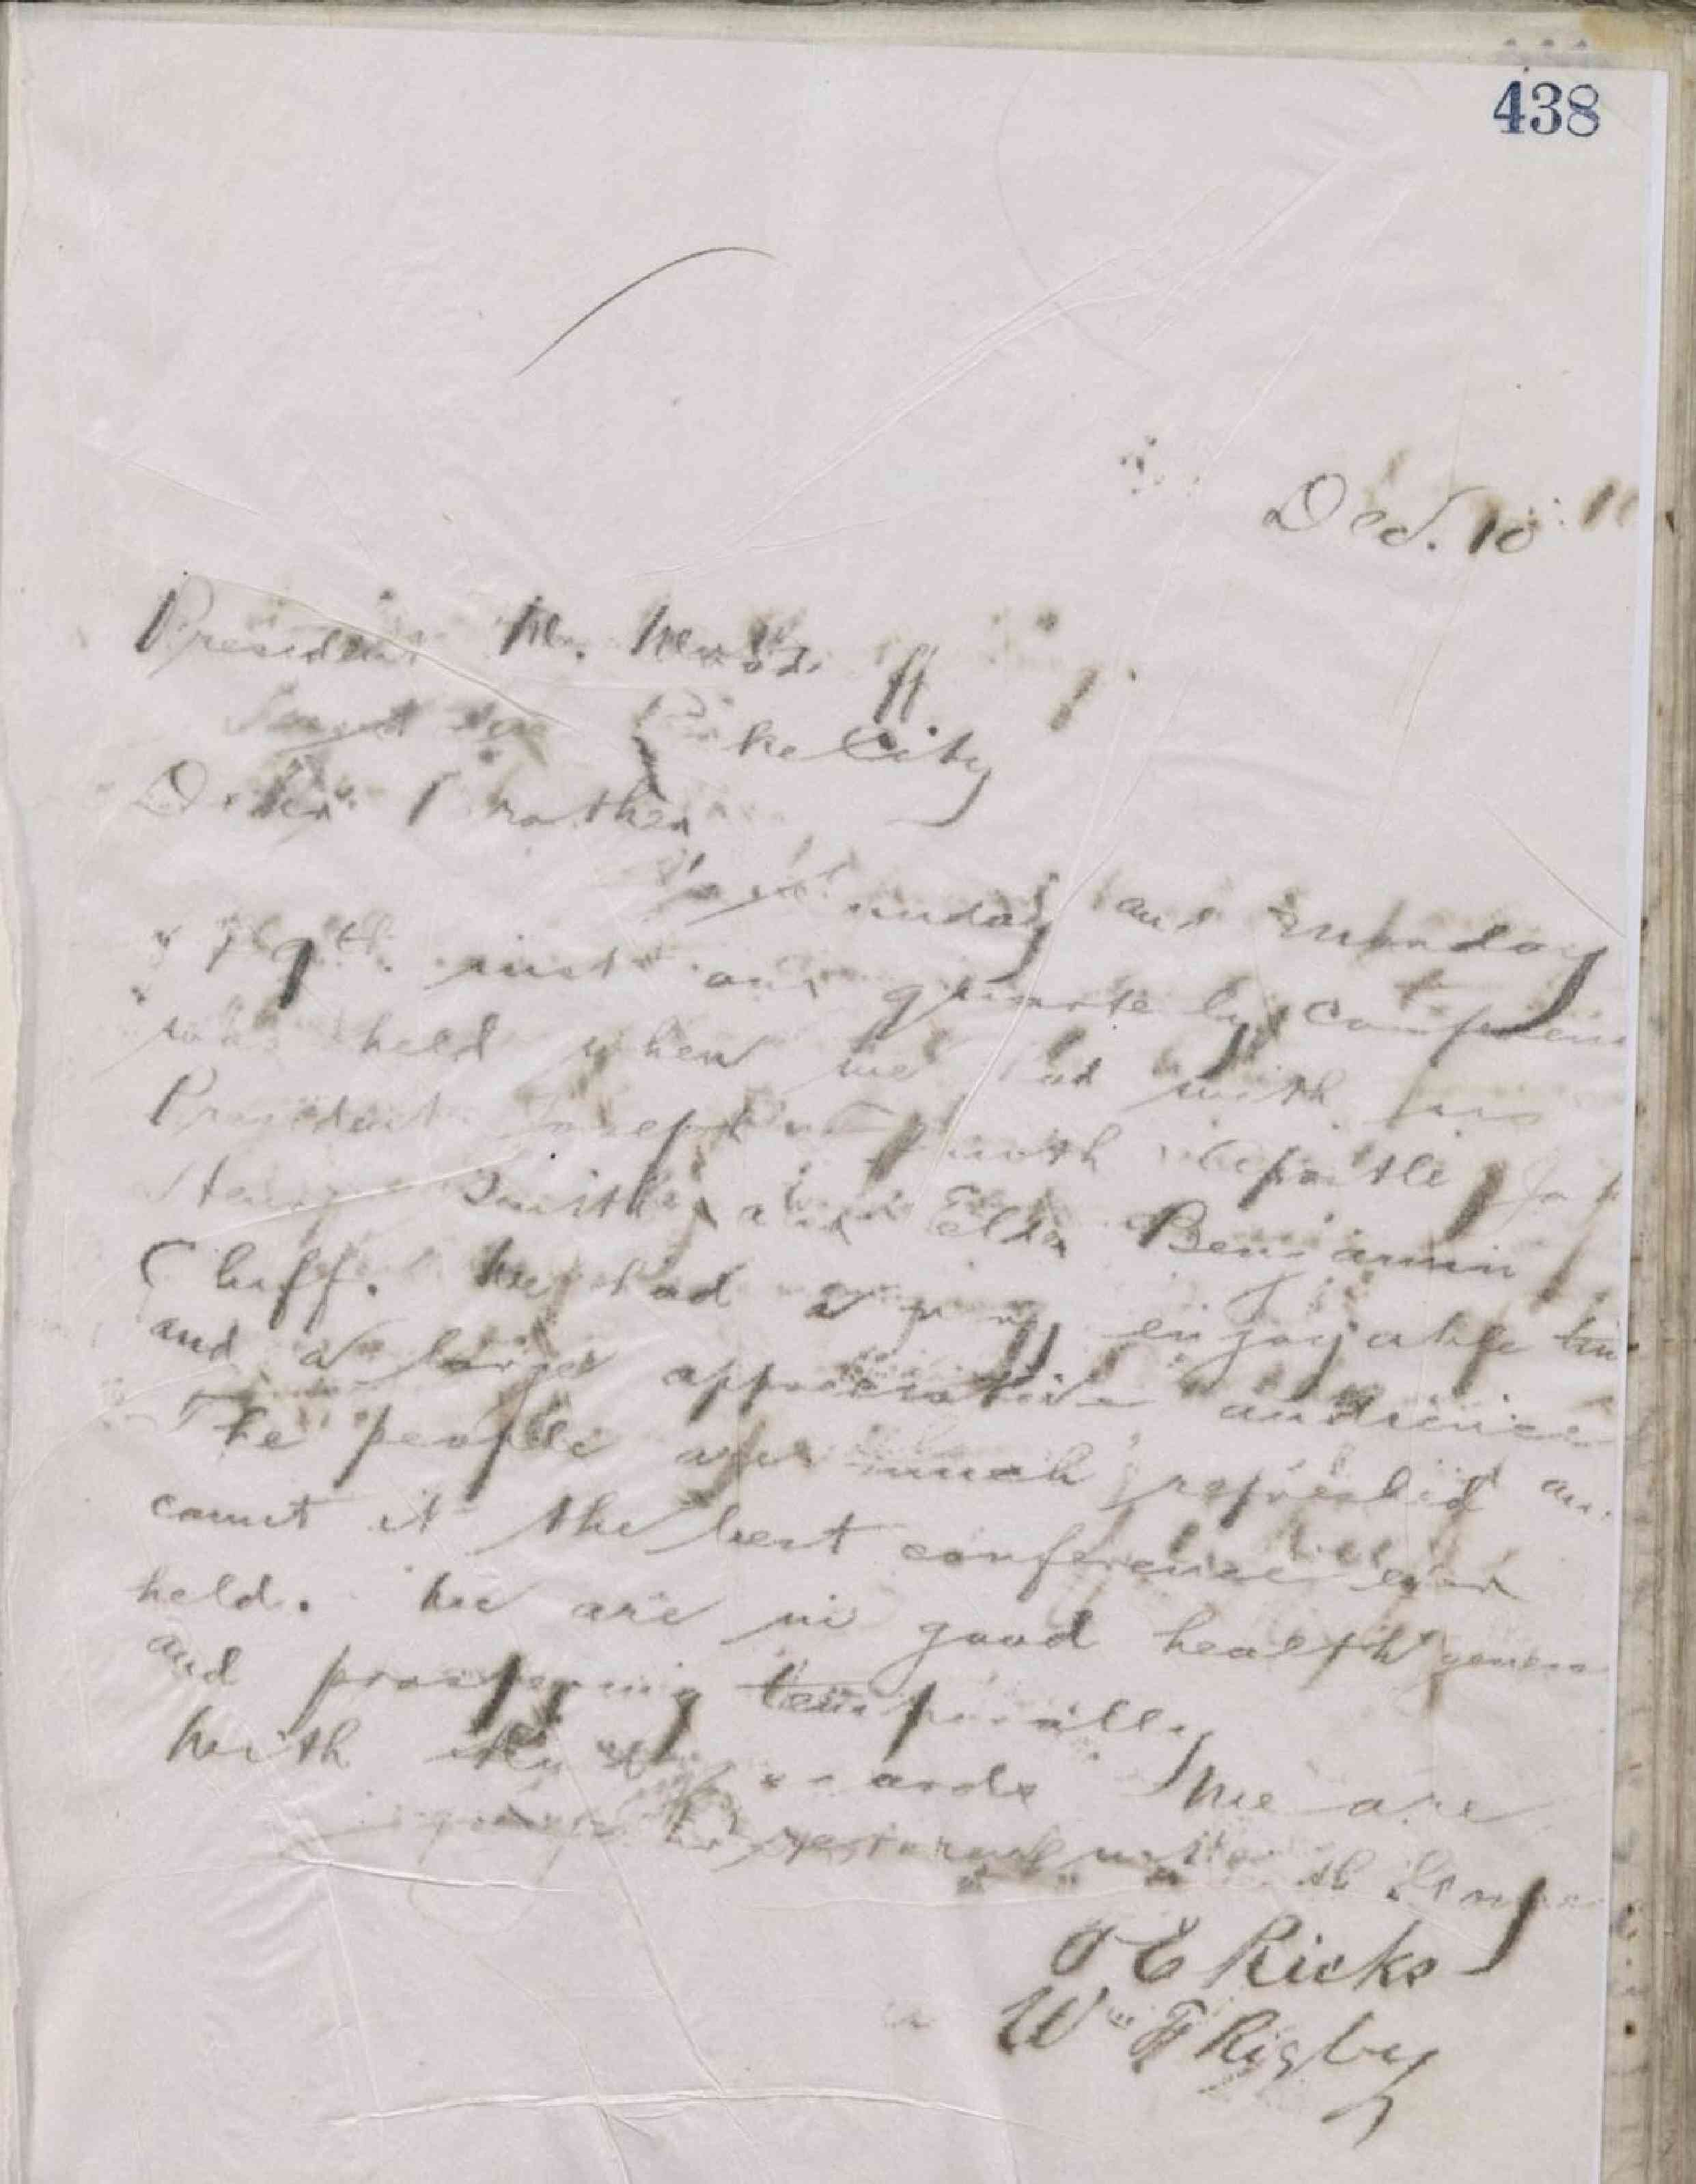 438
Dec. 10
President W. Woodruff
Salt Lake City
Dear Brother
Last Sunday and Monday
9th. inst our quarterly conferenc
was held when we had with us
President Joseph F Smith Apostle Jo
Henry Smith, and Elder Benjamin
Cluff. We had a very enjoyable time
and a large appreciative audience
The people are much refreshed an
count it the best conference ever
held. We are in good health genera
and prospering temporally
With kind regards We are
in the Gospel
T E Ricks
Wm F Rigby